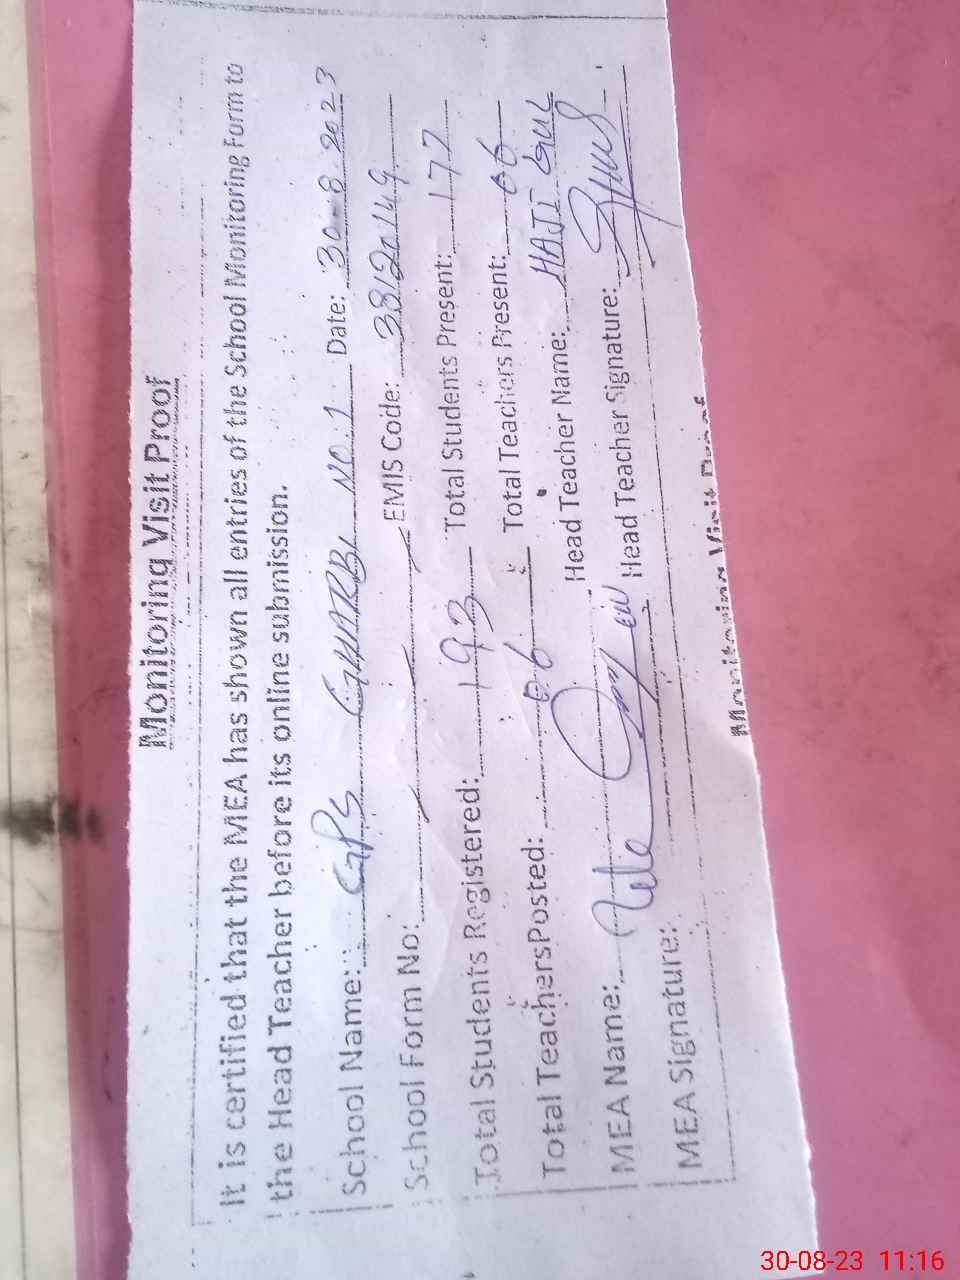 Monitoring Visit Proof
It is certified that the MEA has shown all entries of the School Monitoring Form to
the Head Teacher before its online submission.
School Name: GPS GHARBI NO.1 Date: 30-8-2023
School Form No: EMIS Code: 38120149
Total Students Registered: 193 Total Students Present: 177
Total TeachersPosted: 06 Total Teachers Present: 06
MEA Name: Head Teacher Name: HAJI GUL
MEA Signature: Head Teacher Signature:
Monitoring Visit Proof
30-08-23 11:16